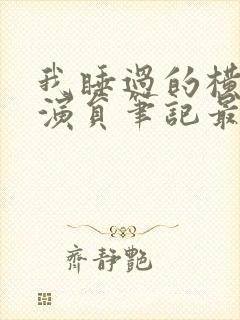 我睡過的橫
演員筆記最
齊靜艷